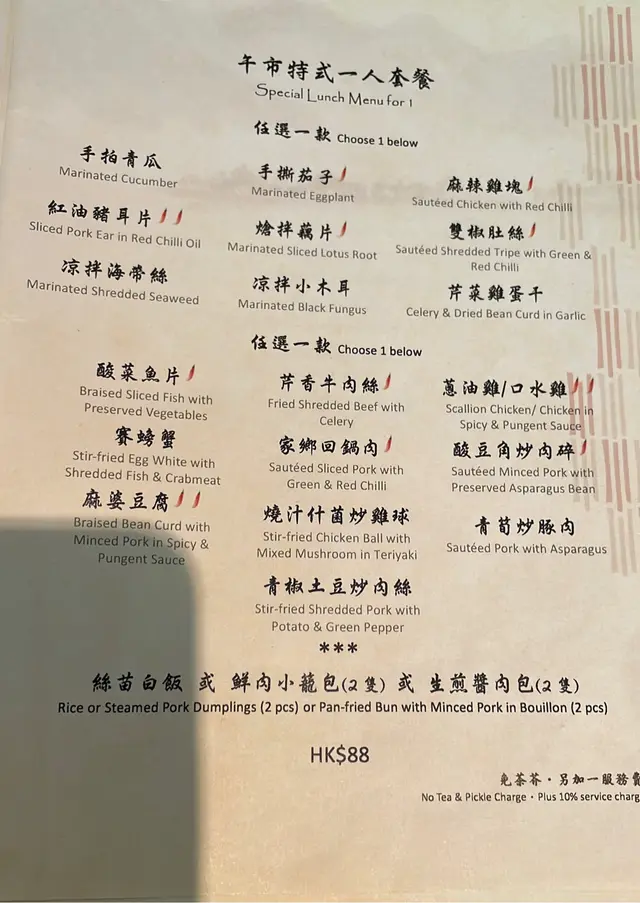 午市特式一人套餐
Special Lunch Menu for 1
任選一款 Choose 1 below
手拍青瓜
Marinated Cucumber
手撕茄子
Marinated Eggplant
麻辣雞塊
Sautéed Chicken with Red Chilli
紅油豬耳片
Sliced Pork Ear in Red Chilli Oil
熗拌藕片
Marinated Sliced Lotus Root
雙椒肚絲
Sautéed Shredded Tripe with Green &
Red Chilli
凉拌海帶絲
Marinated Shredded Seaweed
凉拌小木耳
Marinated Black Fungus
芹菜雞蛋干
Celery & Dried Bean Curd in Garlic
任選一款 Choose 1 below
酸菜魚片
Braised Sliced Fish with
Preserved Vegetables
芹香牛肉絲
Fried Shredded Beef with
Celery
蔥油雞/口水雞
Scallion Chicken/ Chicken in
Spicy & Pungent Sauce
賽螃蟹
Stir-fried Egg White with
Shredded Fish & Crabmeat
家鄉回鍋肉
Sautéed Sliced Pork with
Green & Red Chilli
酸豆角炒肉碎
Sautéed Minced Pork with
Preserved Asparagus Bean
麻婆豆腐
Braised Bean Curd with
Minced Pork in Spicy &
Pungent Sauce
燒汁什菌炒雞球
Stir-fried Chicken Ball with
Mixed Mushroom in Teriyaki
青荀炒豚肉
Sautéed Pork with Asparagus
青椒土豆炒肉絲
Stir-fried Shredded Pork with
Potato & Green Pepper
***
絲苗白飯 或 鮮肉小籠包(2隻) 或 生煎醬肉包(2隻)
Rice or Steamed Pork Dumplings (2 pcs) or Pan-fried Bun with Minced Pork in Bouillon (2 pcs)
HK$88
免茶芥·另加一服務費
No Tea & Pickle Charge · Plus 10% service charg